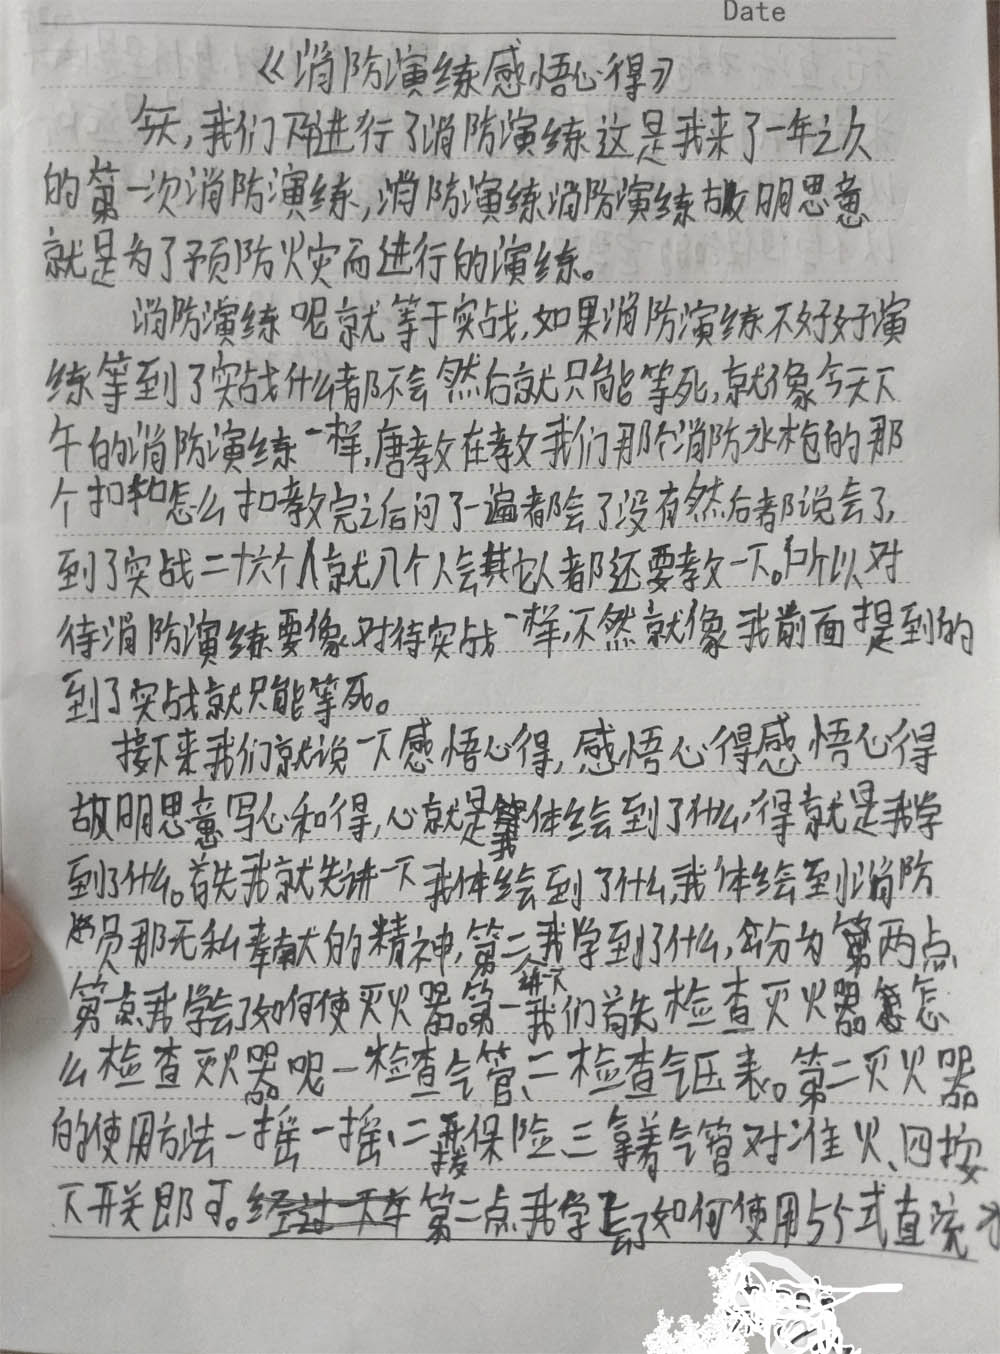 Date
《消防演练感悟心得》
今天，我们再进行了消防演练这是我来了一年之久
的第一次消防演练，消防演练消防演练故明思意
就是为了预防火灾而进行的演练。
消防演练呢就等于实战，如果消防演练不好好演
练等到了实战什么都不会然后就只能等死，就像今天下
午的消防演练一样，唐教在教我们那个消防水枪的那
个扣和怎么扣教完之后问了一遍都会了没有然后都说会了，
到了实战二十六个人就八个人会其它人都还要教一下。所以对
待消防演练要像对待实战一样，不然就像我前面提到的
到了实战就只能等死。
接下来我们就说一下感悟心得，感悟心得感悟心得
故明思意写心和得，心就是我体绘到了什么，得就是我学
到了什么。首先我就先讲一下我体绘到了什么，我体绘到消防
员那无私奉献的精神，第二我学到了什么，分为两点
第一点我学会了如何使灭火器。第一讲下我们首先检查灭火器怎
么检查灭火器呢一检查气管、二检查气压表。第二灭火器
的使用方法一摇一摇、二拨保险、三拿着气管对准火、四按
下开关即可。第二点我学会了如何使用55式直流水